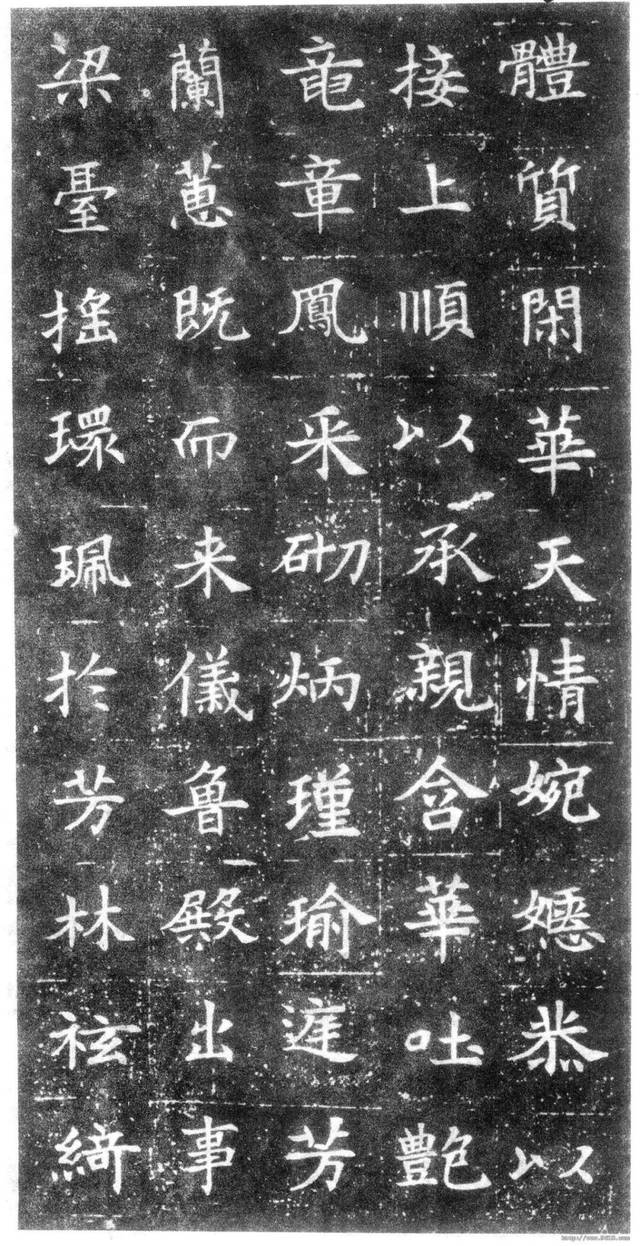 體質閑華天情婉嫕恭以
接上順以承親含華吐艶
竜章鳳采砌炳瑾瑜庭芳
蘭蕙既而来儀魯殿出事
梁臺搖環珮於芳林袨綺